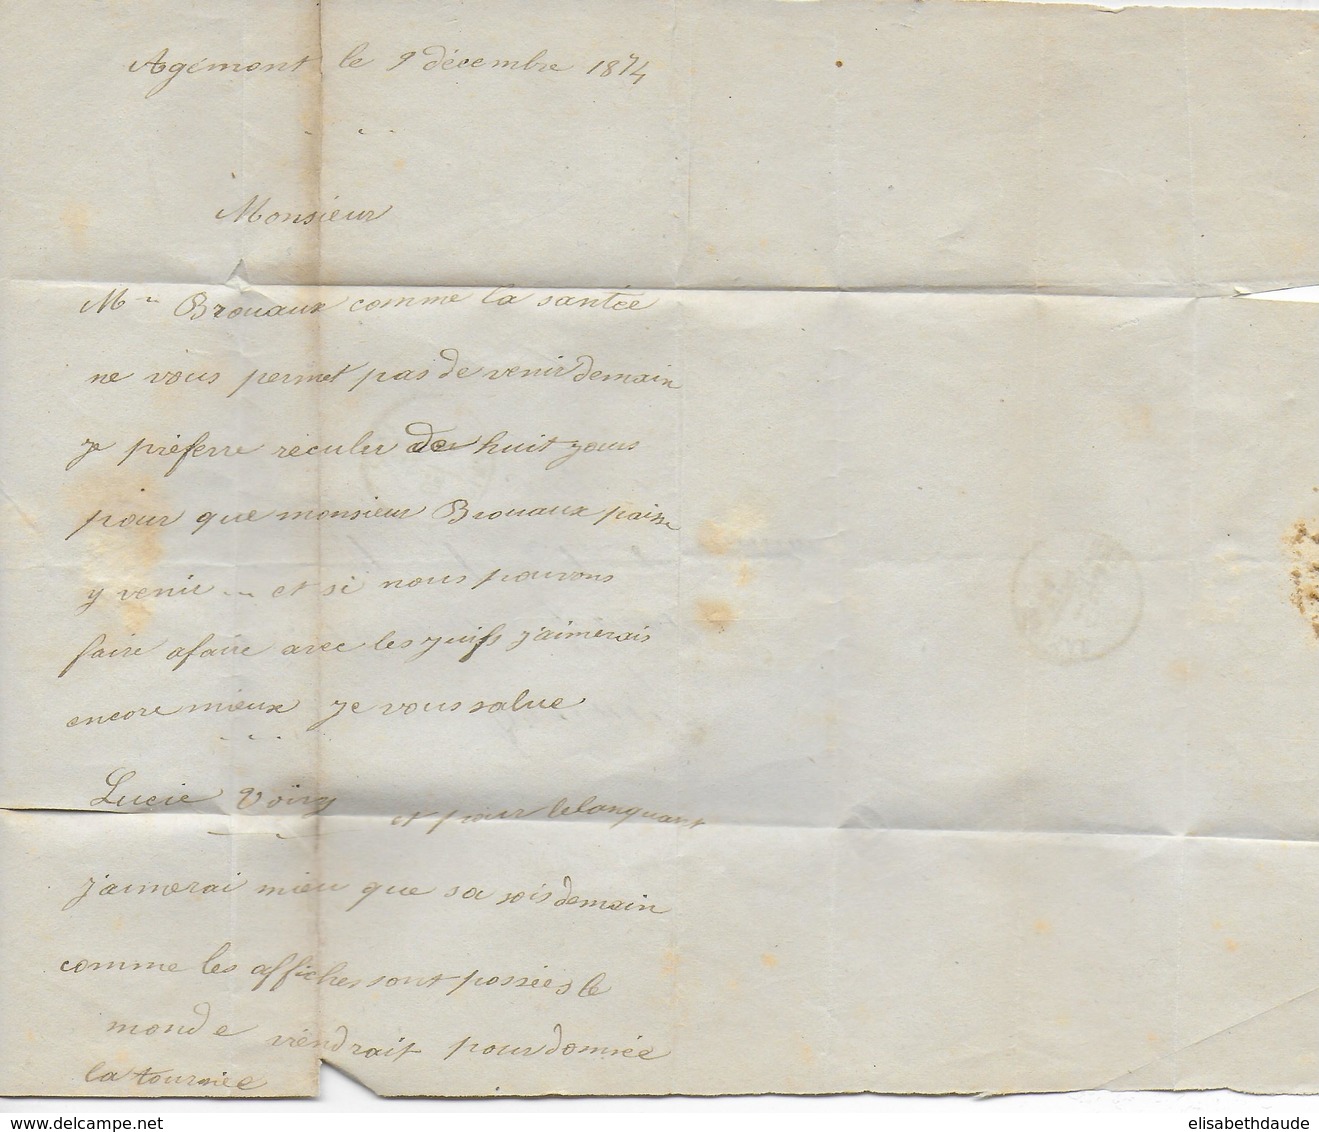 Agémont le 9 décembre 1874
Monsieur
Mr Brouaux comme la santée
ne vous permet pas de venir demain
je préferre reculer de huit jours
pour que monsieur Brouaux puisse
y venir et si nous pouvons
faire afaire avec les juifs j'aimerais
encore mieux je vous salue
Lucie Voiry et pour
j'aimerai mieu que sa sois demain
comme les affiches sont possées le
monde viendrait pour donnée
la tournée
www.delcampe.net
elisabethdaude